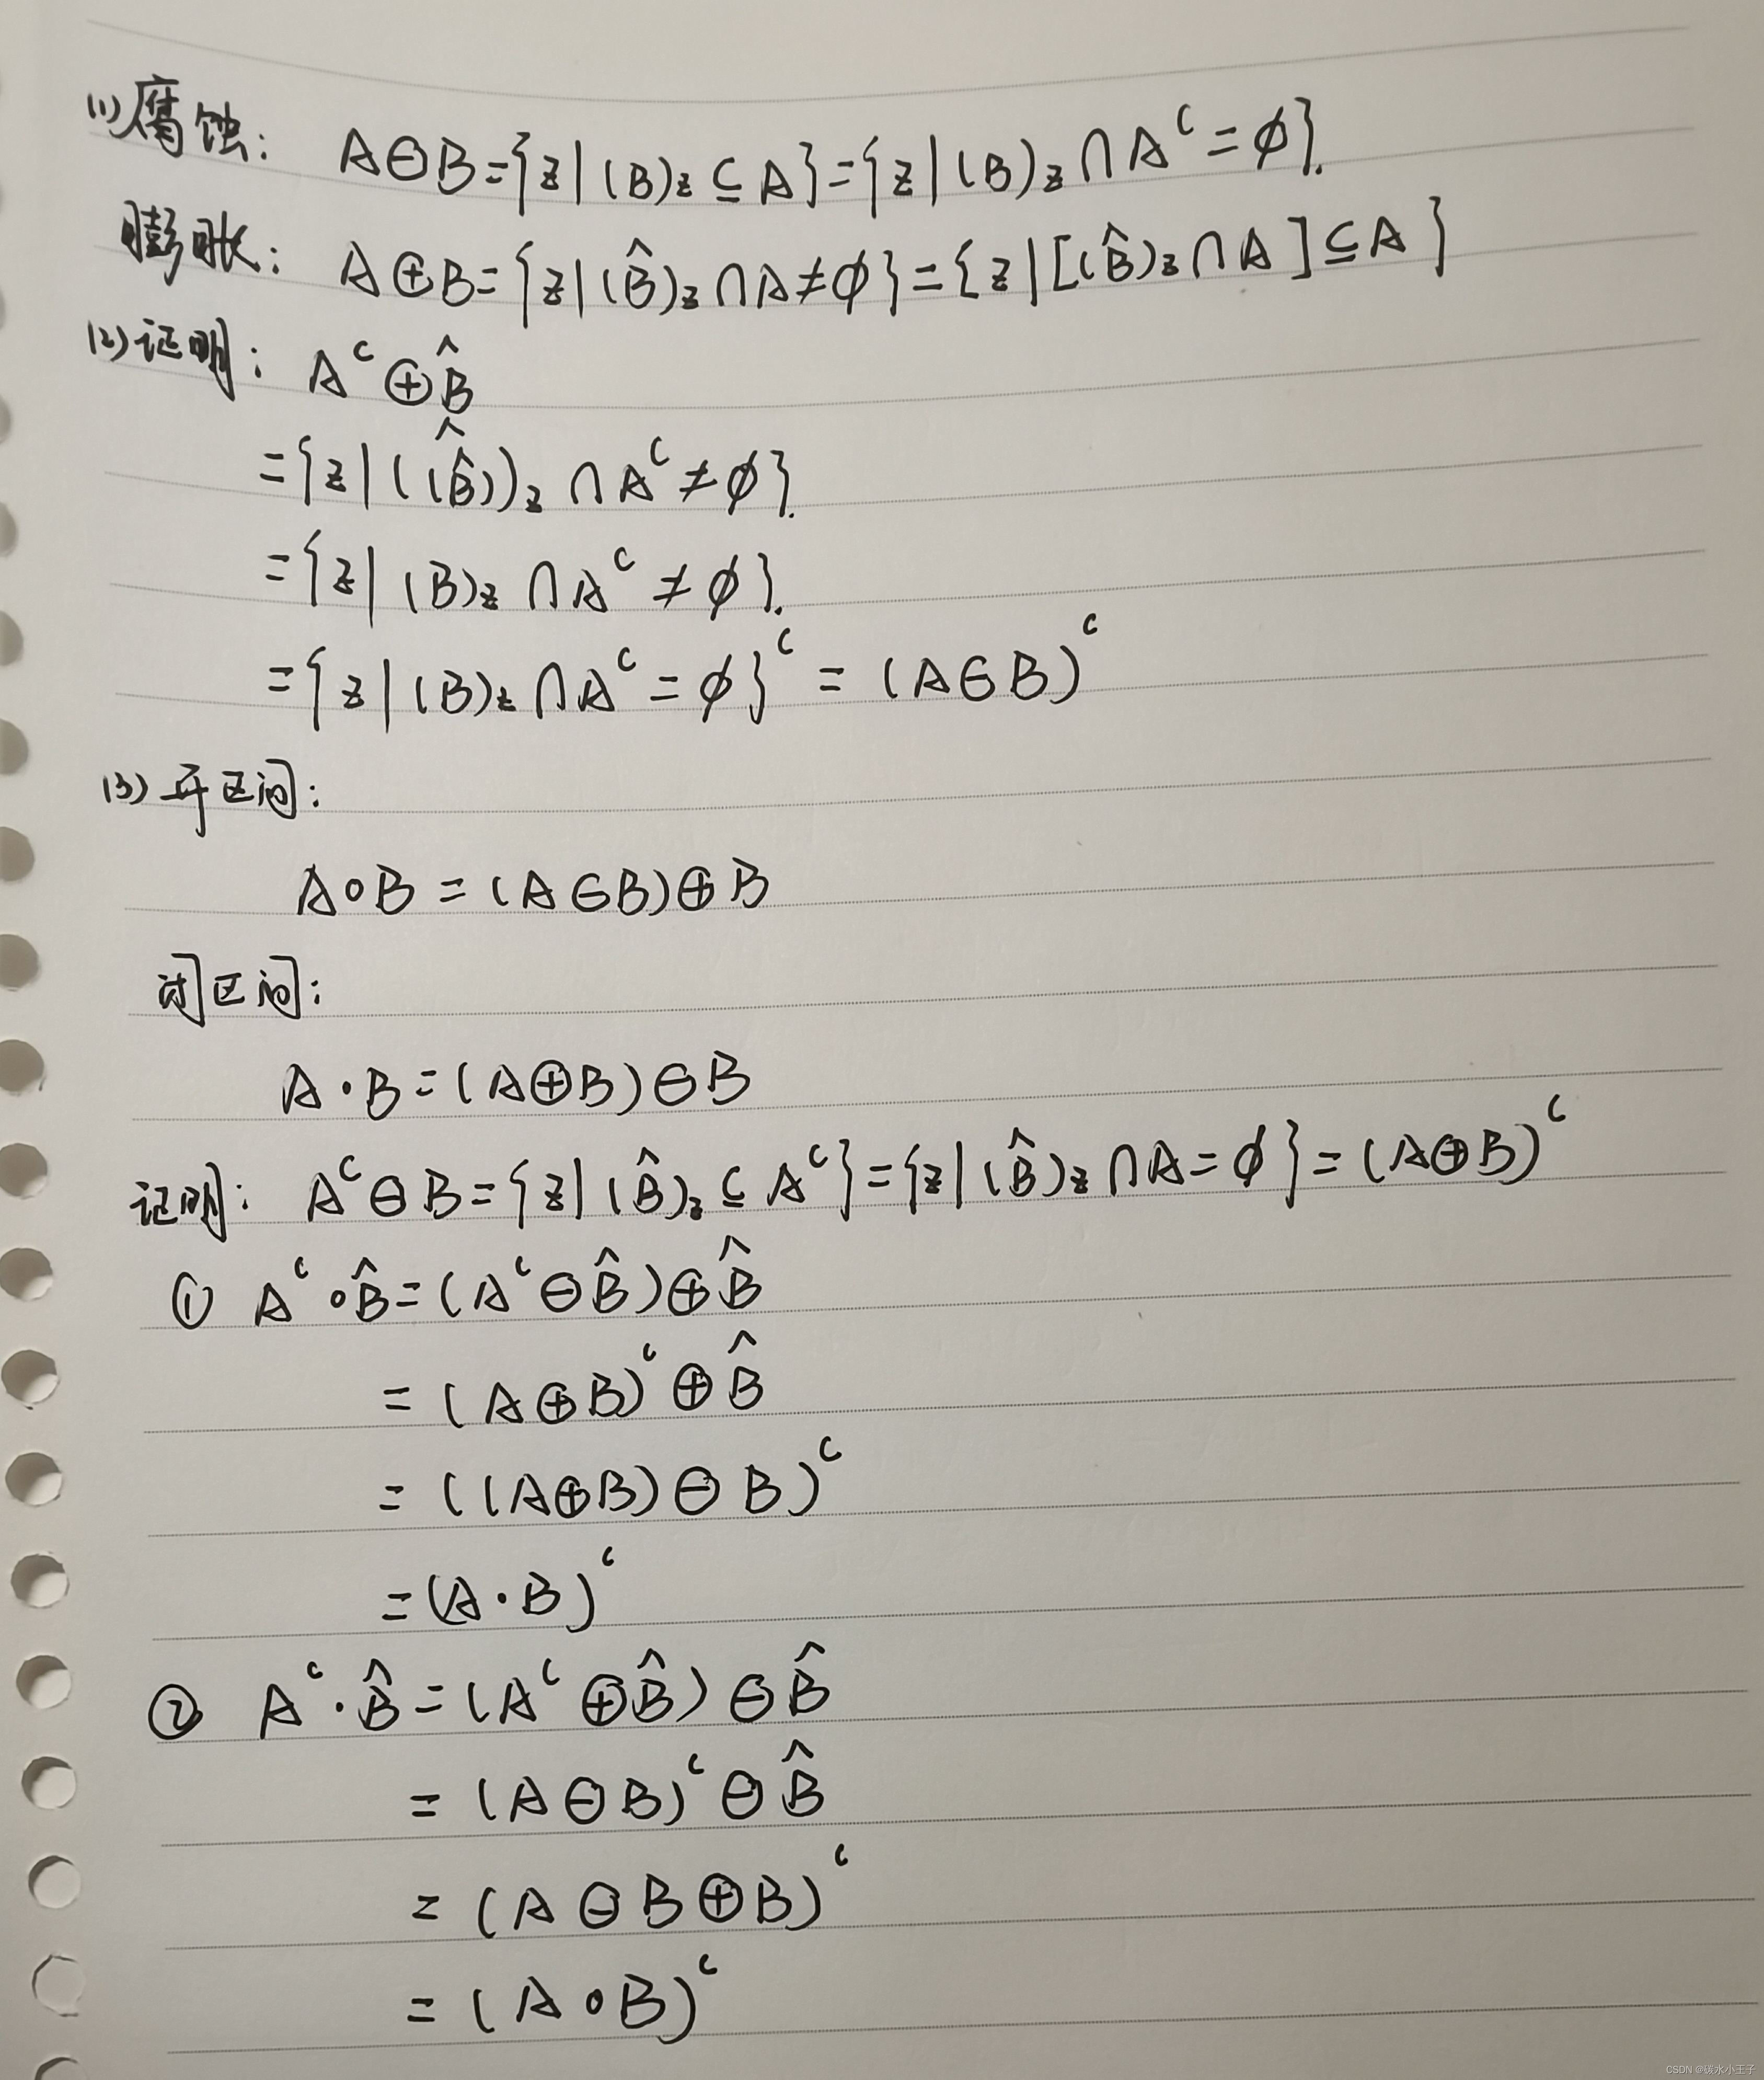 (1) 腐蚀: A⊖B={z|(B)z⊆A}={z|(B)z∩A^c=∅}.
膨胀: A⊕B={z|(B̂)z∩A≠∅}={z|[(B̂)z∩A]⊆A}
(2) 证明: A^c⊕B̂
={z|((B̂)^)z∩A^c≠∅}.
={z|(B)z∩A^c≠∅}.
={z|(B)z∩A^c=∅}^c=(A⊖B)^c
(3) 开区间:
A∘B=(A⊖B)⊕B
闭区间:
A·B=(A⊕B)⊖B
证明: A^c⊖B={z|(B̂)z⊆A^c}={z|(B̂)z∩A=∅}=(A⊕B)^c
① A^c∘B̂=(A^c⊖B̂)⊕B̂
=(A⊕B)^c⊕B̂
=((A⊕B)⊖B)^c
=(A·B)^c
② A^c·B̂=(A^c⊕B̂)⊖B̂
=(A⊖B)^c⊖B̂
=(A⊖B⊕B)^c
=(A∘B)^c
CSDN @碳水小王子